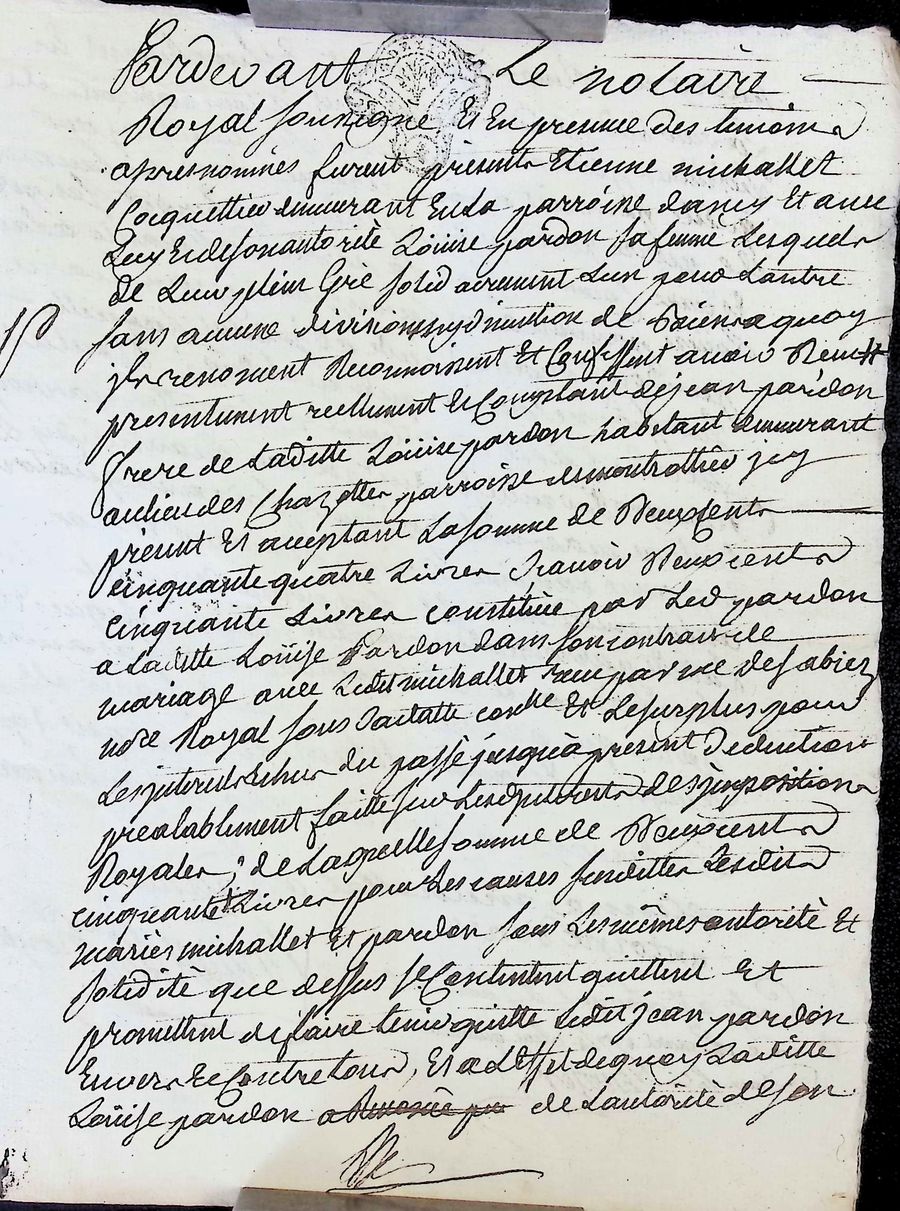 Pardevant Le notaire
Royal soussigné Et En presence des temoins
apres nomines furent presents Etienne michallet
Cocquettier demeurant En La parroisse dancy Et avec
Luy Et de son autorité Loüise pardon sa femme Lesquels
de Leur plein Gré solidairement L'un pour Lautre
sans aucune division ny dimution de biens a quoy
ils renoncent Reconnoissent Et Confessent avoir Receu
presentement reellement Et Comptant de jean pardon
frere de Laditte Loüise pardon habitant demeurant
au lieu des Chazettes parroisse de montrottier jcy
présent Et acceptant La somme de Deux Cents
cinquante quatre Livres scavoir Deux cents
cinquante Livres constitüée par Led pardon
a Laditte Loüise Pardon dans son contrat de
mariage avec Ledit michallet reçu par me desabiez
nore Royal sous sa datte conlle Et Le surplus pour
Les jnterets Echus du passé jusqu'a present Deduction
prealablement faitte sur Lesd jnterests des jmpositions
Royales ; de Laquelle somme de Deux cents
cinquante Livres pour Les causes susdittes Lesdits
mariés michallet Et pardon sous Les mêmes autorité Et
solidité que dessus se Contentent quittent Et
promettent de faire tenir quitte Ledit jean pardon
Envers Et Contre tous, Et a L'Effet de quoy Laditte
Loüise pardon de L'autorité de son